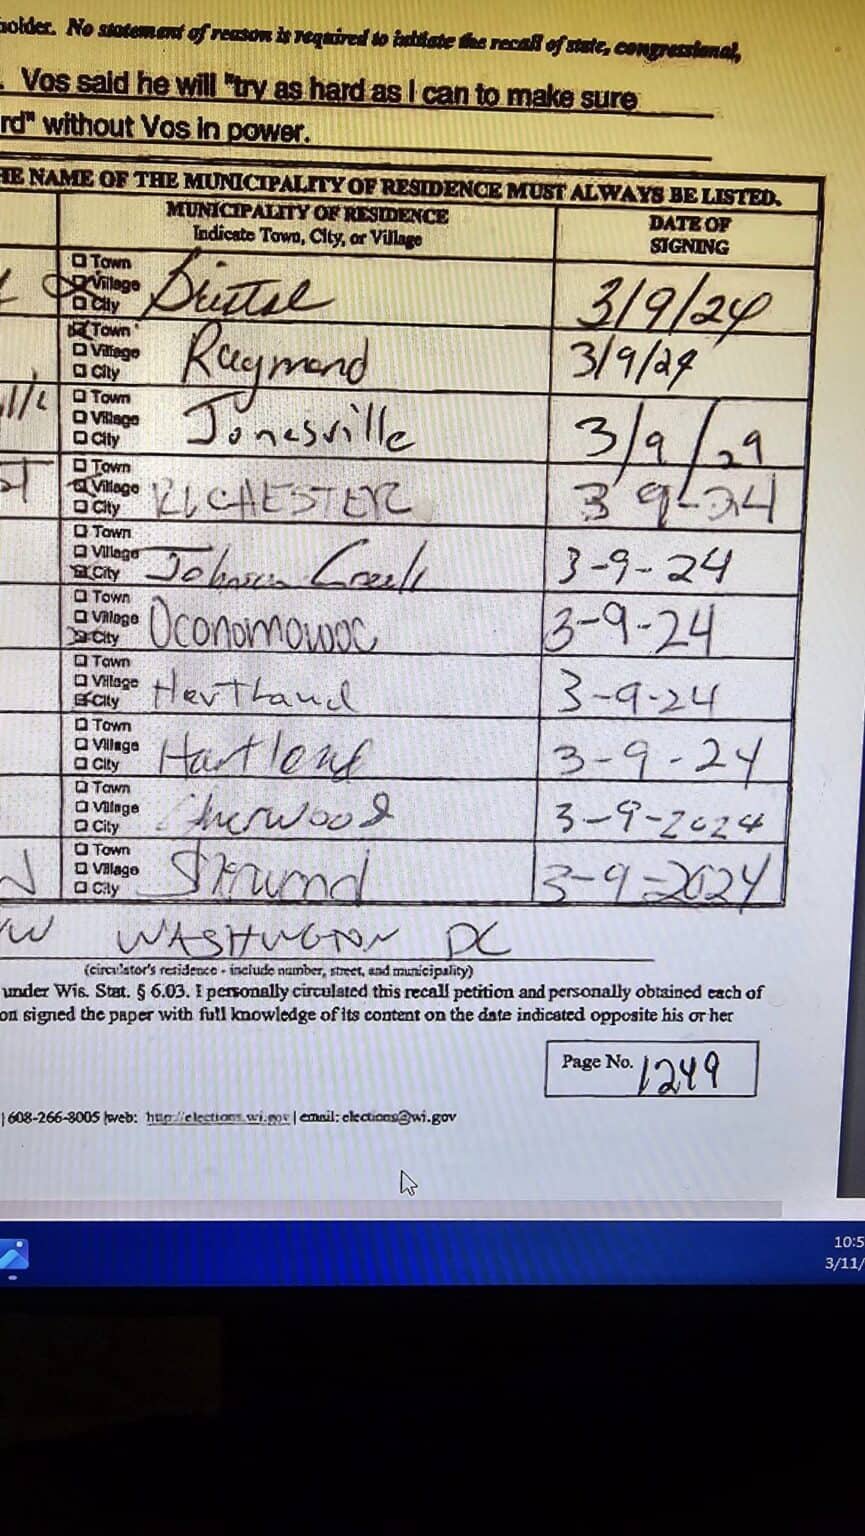 holder. No statement of reason is required to initiate the recall of state, congressional,
. Vos said he will "try as hard as I can to make sure
rd" without Vos in power.
HE NAME OF THE MUNICIPALITY OF RESIDENCE MUST ALWAYS BE LISTED.
MUNICIPALITY OF RESIDENCE
Indicate Town, City, or Village
DATE OF
SIGNING
Town
Village
City
Bristol
3/9/24
Town
Village
City
Raymond
3/9/24
Town
Village
City
Jonesville
3/9/29
Town
Village
City
RICHESTER
3 9-24
Town
Village
City
Johnson Creek
3-9-24
Town
Village
City
Oconomowoc
3-9-24
Town
Village
City
Hartland
3-9-24
Town
Village
City
Hartland
3-9-24
Town
Village
City
Sherwood
3-9-2024
Town
Village
City
3-9-2024
NW WASHINGTON DC
(circulator's residence - include number, street, and municipality)
under Wis. Stat. § 6.03. I personally circulated this recall petition and personally obtained each of
on signed the paper with full knowledge of its content on the date indicated opposite his or her
Page No. 1249
| 608-266-8005 |web: http://elections.wi.gov | email: elections@wi.gov
10:5
3/11/